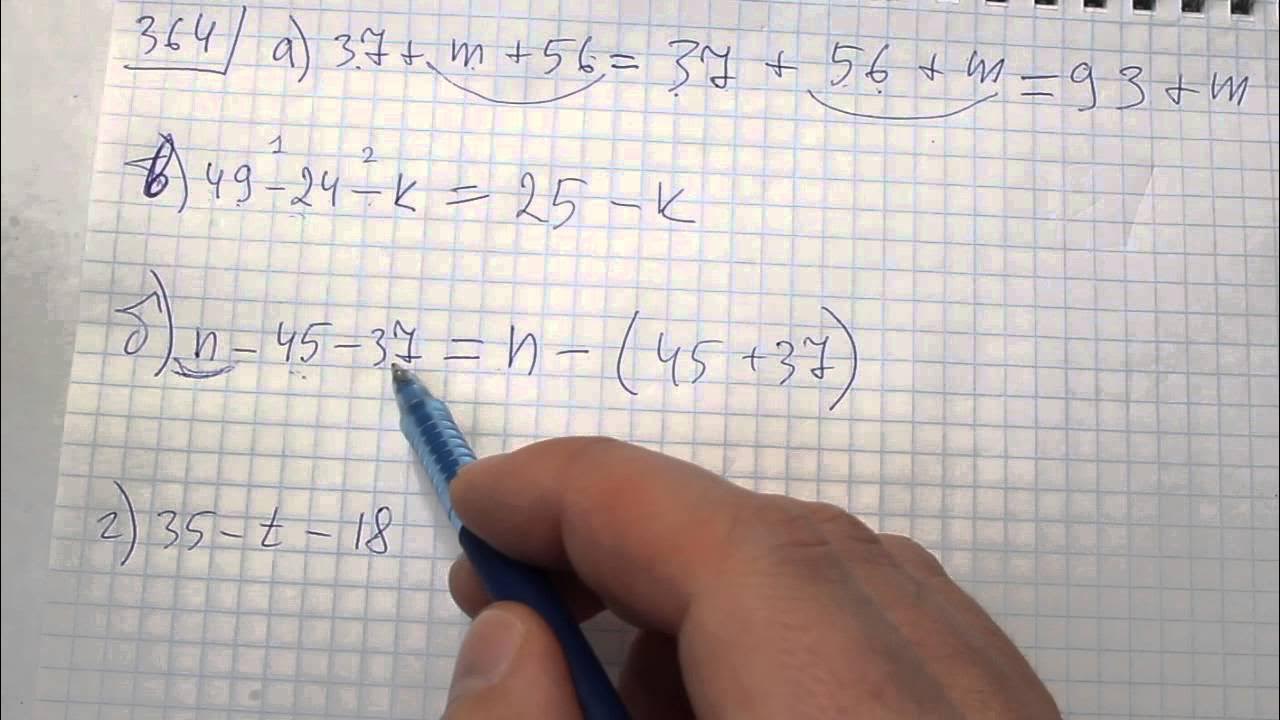 364 а) 37 + m + 56 = 37 + 56 + m = 93 + m
1 2
в) 49 - 24 - k = 25 - k
б) n - 45 - 37 = n - (45 + 37)
г) 35 - t - 18